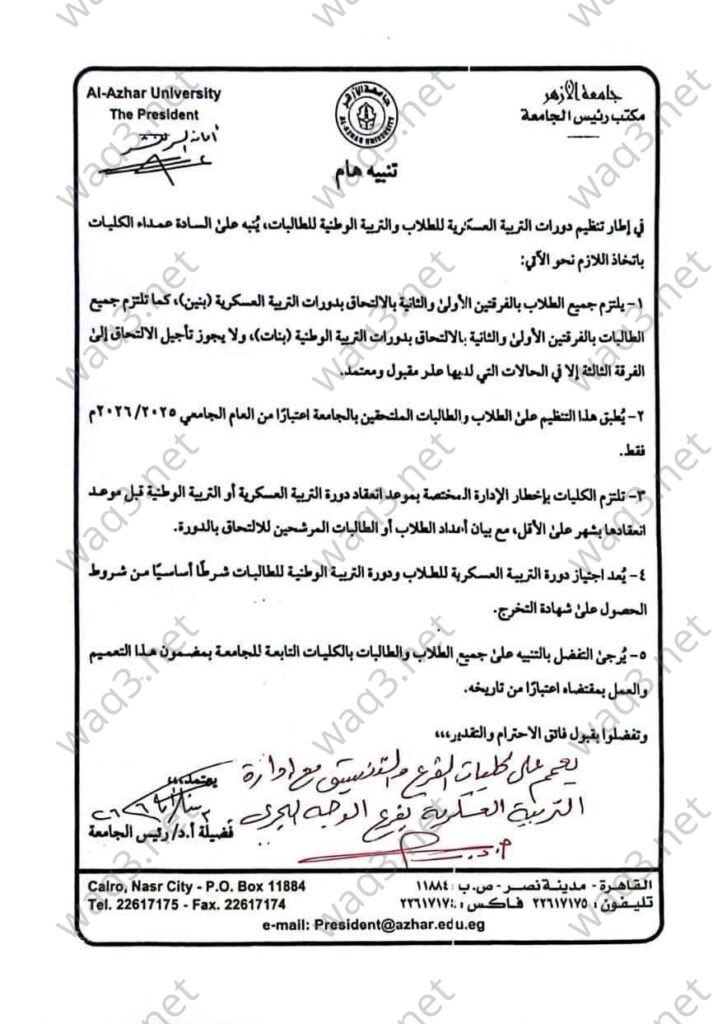 Al-Azhar University
The President
جامعة الأزهر
مكتب رئيس الجامعة
جامعة الأزهر
AL-AZHAR UNIVERSITY
تنبيه هام
في إطار تنظيم دورات التربية العسكرية للطلاب والتربية الوطنية للطالبات، يُنبه على السادة عمداء الكليات
باتخاذ اللازم نحو الآتي:
١- يلتزم جميع الطلاب بالفرقتين الأولى والثانية بالالتحاق بدورات التربية العسكرية (بنين)، كما تلتزم جميع
الطالبات بالفرقتين الأولى والثانية بالالتحاق بدورات التربية الوطنية (بنات)، ولا يجوز تأجيل الالتحاق إلى
الفرقة الثالثة إلا في الحالات التي لديها عذر مقبول ومعتمد.
٢- يُطبق هذا التنظيم على الطلاب والطالبات الملتحقين بالجامعة اعتبارًا من العام الجامعي ٢٠٢٦/٢٠٢٥م
فقط.
٣- تلتزم الكليات بإخطار الإدارة المختصة بموعد انعقاد دورة التربية العسكرية أو التربية الوطنية قبل موعد
انعقادها بشهر على الأقل، مع بيان أعداد الطلاب أو الطالبات المرشحين للالتحاق بالدورة.
٤- يُعد اجتياز دورة التربية العسكرية للطلاب ودورة التربية الوطنية للطالبات شرطًا أساسيًا من شروط
الحصول على شهادة التخرج.
٥- يُرجى التفضل بالتنبيه على جميع الطلاب والطالبات بالكليات التابعة للجامعة بمضمون هذا التعميم
والعمل بمقتضاه اعتبارًا من تاريخه.
وتفضلوا بقبول فائق الاحترام والتقدير،،،
يعمم على كليات الفرع والتنسيق مع إدارة
التربية العسكرية بفرع الوجه البحري
يعتمد،،،
فضيلة أ.د/ رئيس الجامعة
Cairo, Nasr City - P.O. Box 11884
Tel. 22617175 - Fax. 22617174
القاهرة - مدينة نصر - ص.ب: ١١٨٨٤
تليفون: ٢٢٦١٧١٧٥ فاكس: ٢٢٦١٧١٧٤
e-mail: President@azhar.edu.eg
waq3.net